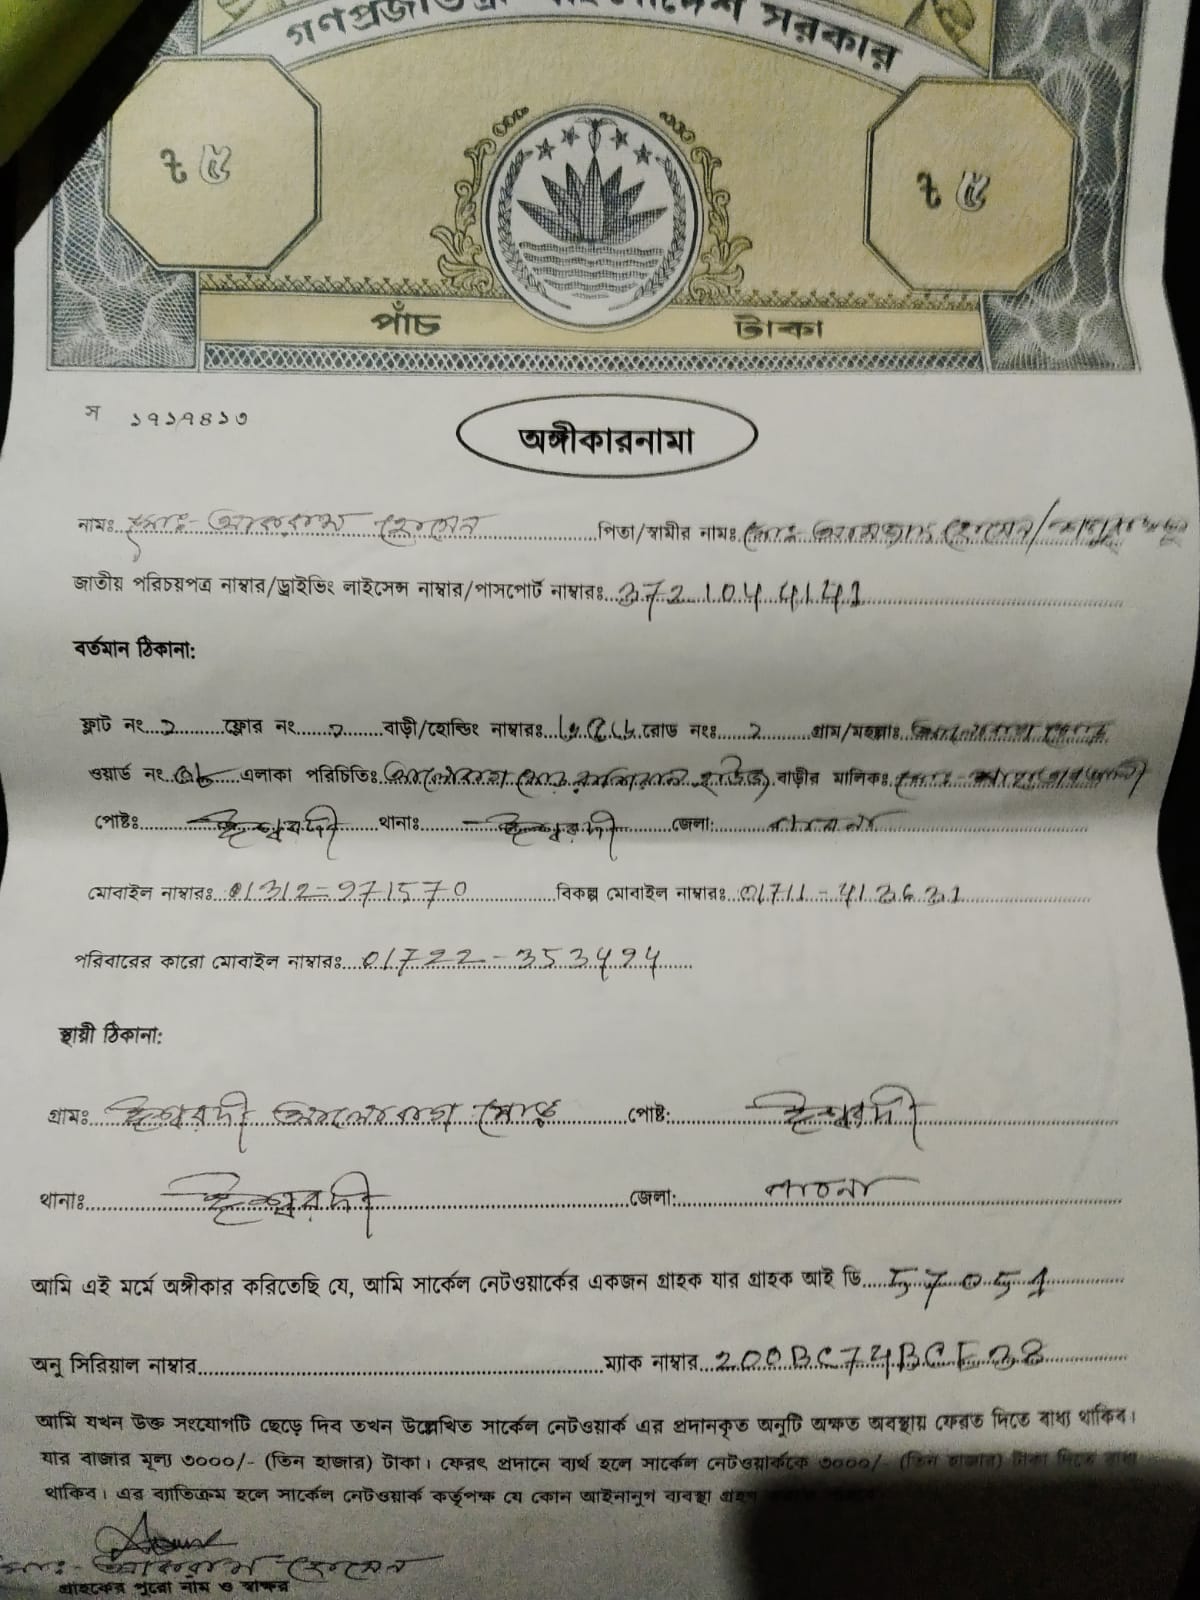 গণপ্রজাতন্ত্রী বাংলাদেশ সরকার
৳ ৫ ৳ ৫
পাঁচ টাকা
স ১৭১৭৪১৩
অঙ্গীকারনামা
নামঃ মোঃ- আকরাম হোসেন পিতা/স্বামীর নামঃ মোঃ- হোসেন/
জাতীয় পরিচয়পত্র নাম্বার/ড্রাইভিং লাইসেন্স নাম্বার/পাসপোর্ট নাম্বারঃ 372 104 4141
বর্তমান ঠিকানা:
ফ্লাট নং ফ্লোর নং বাড়ী/হোল্ডিং নাম্বারঃ রোড নংঃ ২ গ্রাম/মহল্লাঃ
ওয়ার্ড নং এলাকা পরিচিতিঃ বাড়ীর মালিকঃ
পোষ্টঃ ঈশ্বরদী থানাঃ ঈশ্বরদী জেলা: পাবনা
মোবাইল নাম্বারঃ 01312-971570 বিকল্প মোবাইল নাম্বারঃ 01711-413631
পরিবারের কারো মোবাইল নাম্বারঃ 01722-353494
স্থায়ী ঠিকানা:
গ্রামঃ ঈশ্বরদী আলোবাগ মোড় পোষ্ট: ঈশ্বরদী
থানাঃ ঈশ্বরদী জেলা: পাবনা
আমি এই মর্মে অঙ্গীকার করিতেছি যে, আমি সার্কেল নেটওয়ার্কের একজন গ্রাহক যার গ্রাহক আই ডি 57051
অনু সিরিয়াল নাম্বার ম্যাক নাম্বার 200BC74BCE38
আমি যখন উক্ত সংযোগটি ছেড়ে দিব তখন উল্লেখিত সার্কেল নেটওয়ার্ক এর প্রদানকৃত অনুটি অক্ষত অবস্থায় ফেরত দিতে বাধ্য থাকিব।
যার বাজার মূল্য ৩০০০/- (তিন হাজার) টাকা। ফেরৎ প্রদানে ব্যর্থ হলে সার্কেল নেটওয়ার্ককে ৩০০০/- (তিন হাজার) টাকা দিতে বাধ্য
থাকিব। এর ব্যাতিক্রম হলে সার্কেল নেটওয়ার্ক কর্তৃপক্ষ যে কোন আইনানুগ ব্যবস্থা গ্রহণ
মোঃ- আকরাম হোসেন
গ্রাহকের পুরো নাম ও স্বাক্ষর